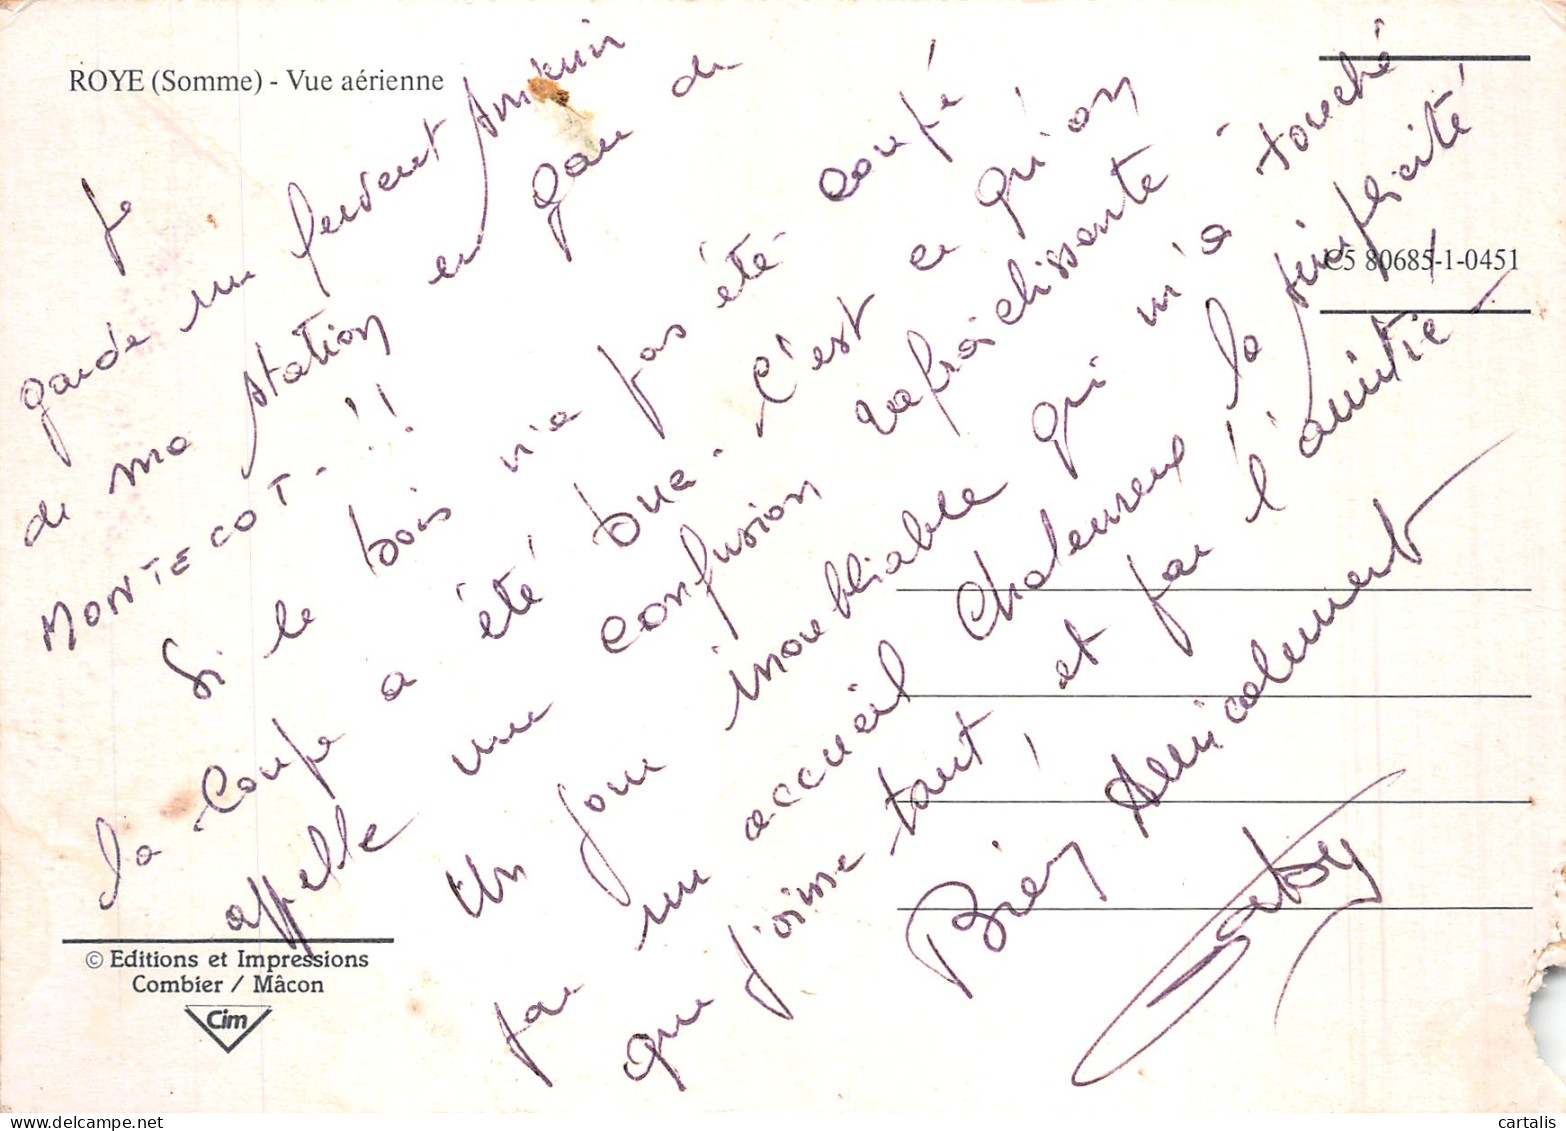 ROYE (Somme) - Vue aérienne
Je
garde un fervent
de ma station en gare de
MONTECOT - !!
Si le bois n'a pas été coupé
la coupe a été bue. C'est ce qu'on
appelle une confusion rafraichissante -
Un jour inoubliable qui m'a touché
par un accueil chaleureux la simplicité
que j'aime tant, et par l'amitié -
Bien Amicalement
C5 80685-1-0451
© Editions et Impressions
Combier / Mâcon
Cim
cartalis